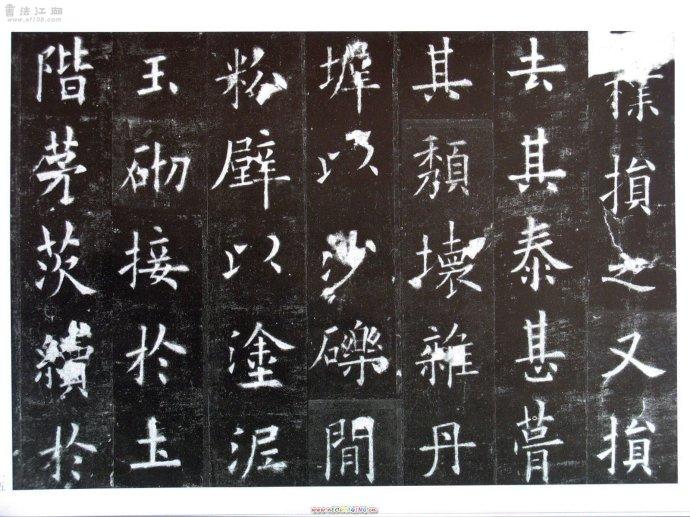 書法江湖
www.sf108.com
樸損之又損
去其泰甚葺
其頹壞雜丹
墀以沙礫間
粉壁以塗泥
玉砌接於土
階茅茨續於
五